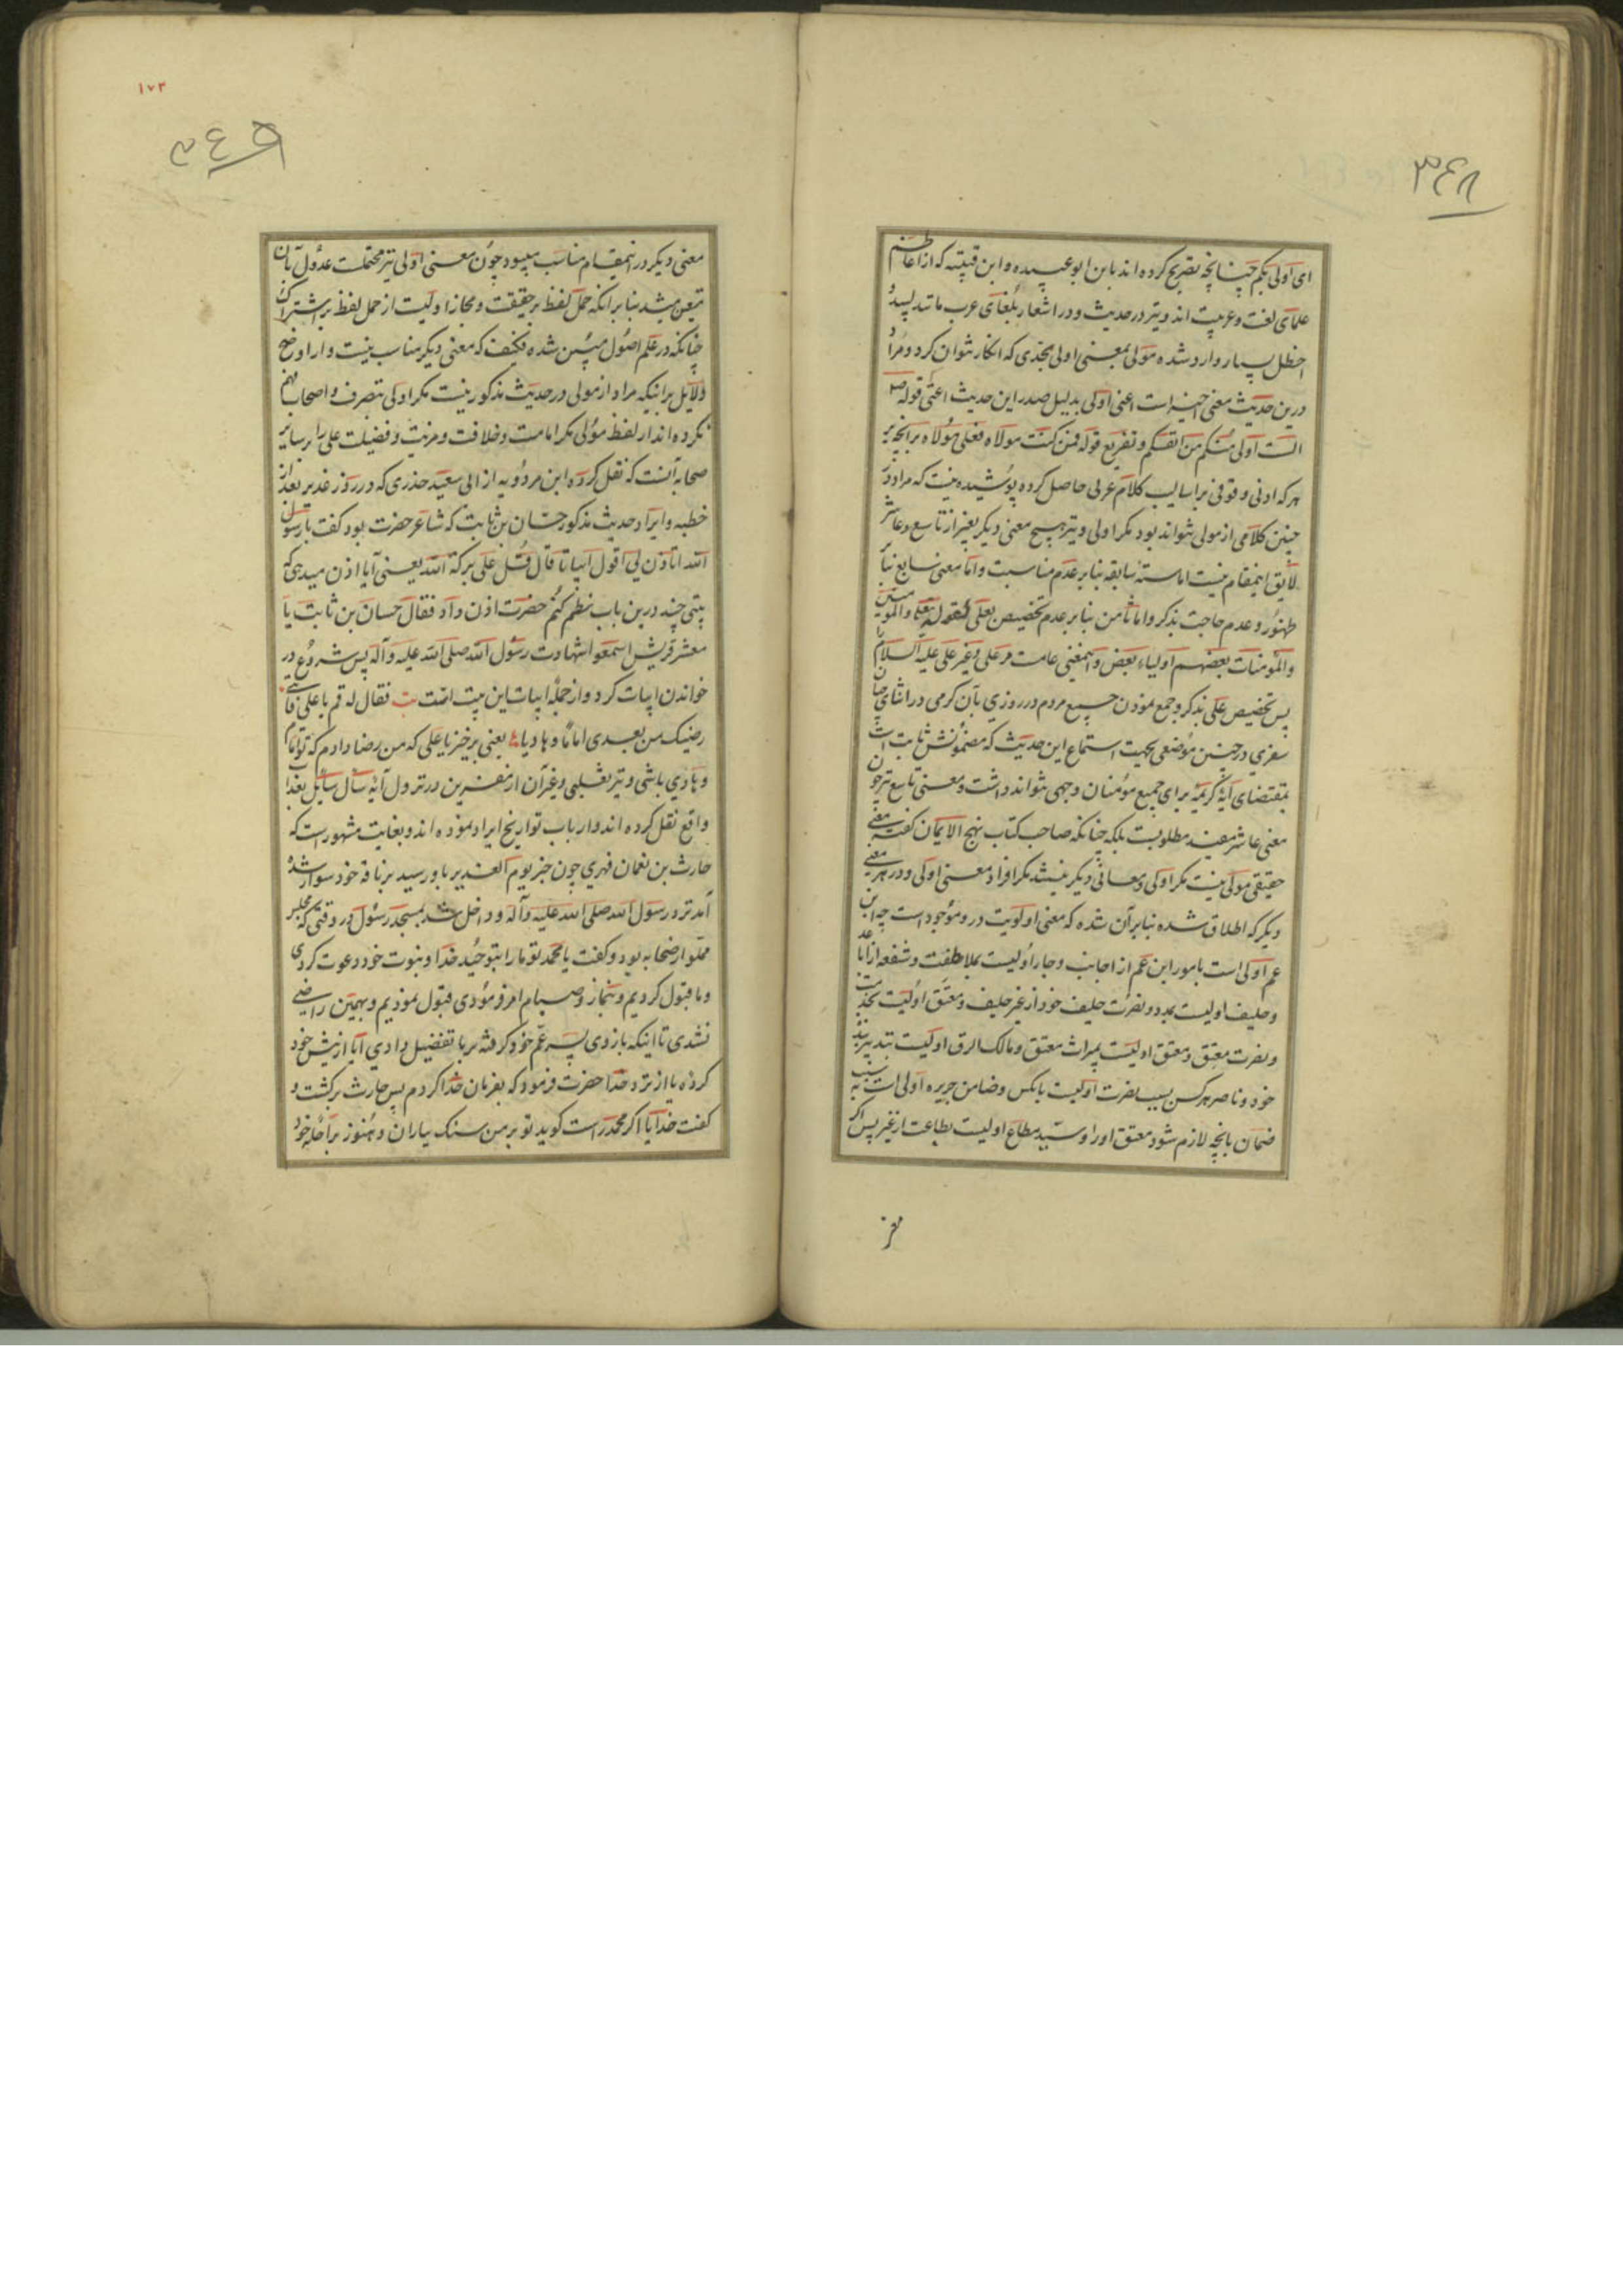 ۳۴۸
ای اولی بکم چنانچه تصریح کرده اند باین ابو عبیده و ابن قتیبه که از اعاظم
علمای لغت و عربیت اند و نیز در حدیث و در اشعار بلغای عرب مانند لبید و
اخطل بسیار وارد شده مولی بمعنی اولی بحدی که انکار نتوان کرد و مراد
درین حدیث معنی اخیر است اعنی اولی بدلیل صدر این حدیث اعنی قوله ص
الست اولی منکم من انفسکم و تفریع قوله فمن کنت مولاه فعلی مولاه بر آنچه بر
هر که ادنی وقوفی بر اسالیب کلام عربی حاصل کرده پوشیده نیست که مراد در
چنین کلامی از مولی نتواند بود مکر اولی و نیز هیچ معنی دیکر بغیر از تاسع و عاشر
لایق اینمقام نیست اما ستهٔ سابقه بنابر عدم مناسبت و اما معنی سابع بنابر
ظهور و عدم حاجت بذکر و اما ثامن بنابر عدم تخصیص بعلی لقوله تعالی والمؤمنین
والمؤمنات بعضهم اولیاء بعض و اینمعنی عامست مر علی و غیر علی علیه السلام را
پس تخصیص علی بذکر و جمع نمودن جمیع مردم در روزی بآن کرمی در اثنای چنان
سفری در چنین موضعی بجهت استماع این حدیث که مضمونش ثابت است
بمقتضای آیهٔ کریمه برای جمیع مؤمنان وجهی نتواند داشت و معنی تاسع نیز چون
معنی عاشر مفید مطلوبست بلکه چنانکه صاحب کتاب نهج الایمان کفته معنی
حقیقی مولی نیست مکر اولی و معانی دیکر نیستند مکر افراد معنی اولی و در هر معنی
دیکر که اطلاق شده بنابر آن شده که معنی اولویت در و موجود است چه ابن
عم اولی است بامور ابن عم از اجانب و جار اولیست بملاطفت و شفعه از اباعد
و حلیف اولیست بمدد و نصرت حلیف خود از غیر حلیف و معتق اولیست بخدمت
و نصرت معتق و معتق اولیست بمیراث معتق و مالک الرق اولیست بتدبیر بندهٔ
خود و ناصر هر کس بسبب نصرت اولیست بآنکس و ضامن جریره اولی است بسبب
ضمان بآنچه لازم شود معتق اورا و سید مطاع اولیست بطاعت از غیر پس اکر
۱۷۳
۳۴۹
معنی دیکر در اینمقام مناسب میبود چون معنی اولی نیز محتملست عدول بآن
متعین میشد بنابر آنکه حمل لفظ بر حقیقت و مجاز اولیست از حمل لفظ بر اشتراک
چنانکه در علم اصول مبین شده فکیف که معنی دیکر مناسب نیست و از اوضح
دلایل بر اینکه مراد از مولی در حدیث مذکور نیست مکر اولی بتصرف و اصحاب فهم
نکرده اند از لفظ مولی مکر امامت و خلافت و مزیت و فضیلت علی را بر سایر
صحابه آنست که نقل کرده ابن مردویه از ابی سعید خدری که در روز غدیر بعد از
خطبه و ایراد حدیث مذکور حسّان بن ثابت که شاعر حضرت بود کفت یا رسول
الله اتأذن لی اقول ابیاتا قال قل علی برکة الله یعنی آیا اذن میدهی که
بیتی چند درین باب نظم کنم حضرت اذن داد فقال حسان بن ثابت یا
معشر قریش اسمعوا شهادت رسول الله صلی الله علیه وآله پس شروع در
خواندن ابیات کرد و از جملهٔ ابیات این بیت است بیت فقال له قم یا علی فاننی
رضیتک من بعدی اماما و هادیا یعنی برخیز یا علی که من رضا دادم که تو امام
و هادی باشی و نیز ثعلبی و غیر آن از مفسرین در نزول آیهٔ سأل سایل بعذاب
واقع نقل کرده اند و ارباب تواریخ ایراد نموده اند و بغایت مشهور است که
حارث بن نعمان فهری چون خبر یوم الغدیر باو رسید بر ناقه خود سوار شده
آمد نزد رسول الله صلی الله علیه وآله و داخل شد بمسجد رسول در وقتی که مجلس
مملو از صحابه بود و کفت یا محمد تو ما را بتوحید خدا و بنوت خود دعوت کردی
و ما قبول کردیم و بنماز و صیام امر فرمودی قبول نمودیم و بهمین راضی
نشدی تا اینکه بازوی پسر عم خود کرفته بر ما تفضیل دادی آیا از پیش خود
کردهٔ یا از نزد خدا حضرت فرمود که بفرمان خدا کردم پس حارث برکشت و
کفت خدایا اکر محمد راست کوید تو بر من سنک بباران و هنوز براحلهٔ خود